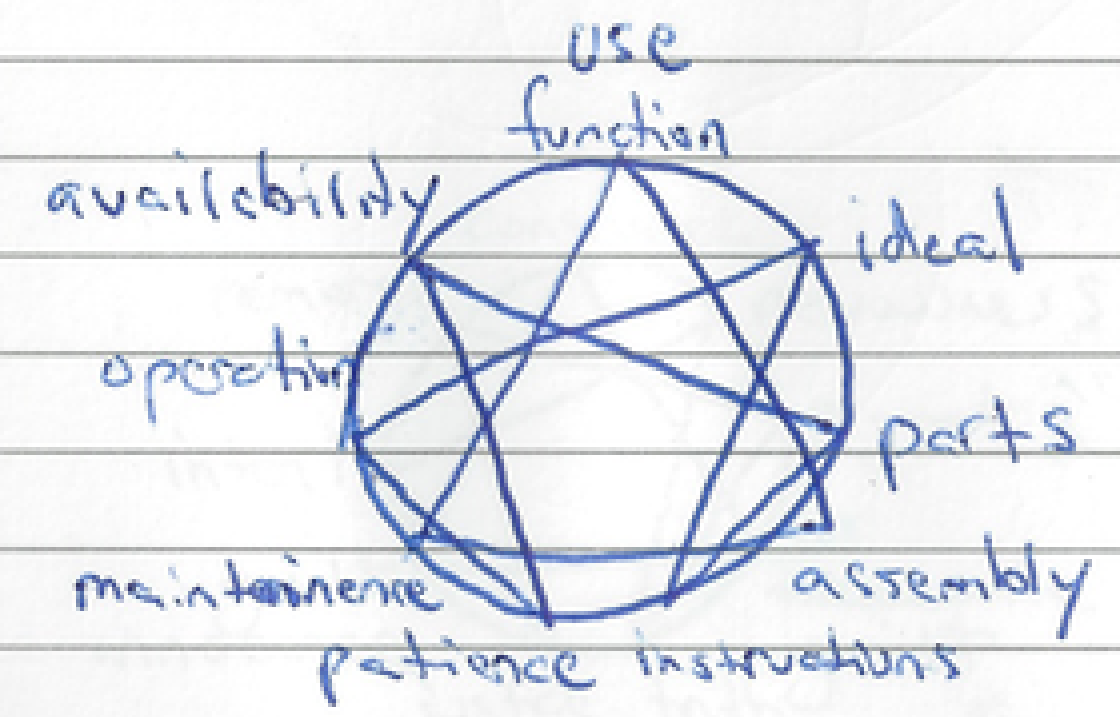 use
function
availability
ideal
operation
parts
maintainence
assembly
patience instructions